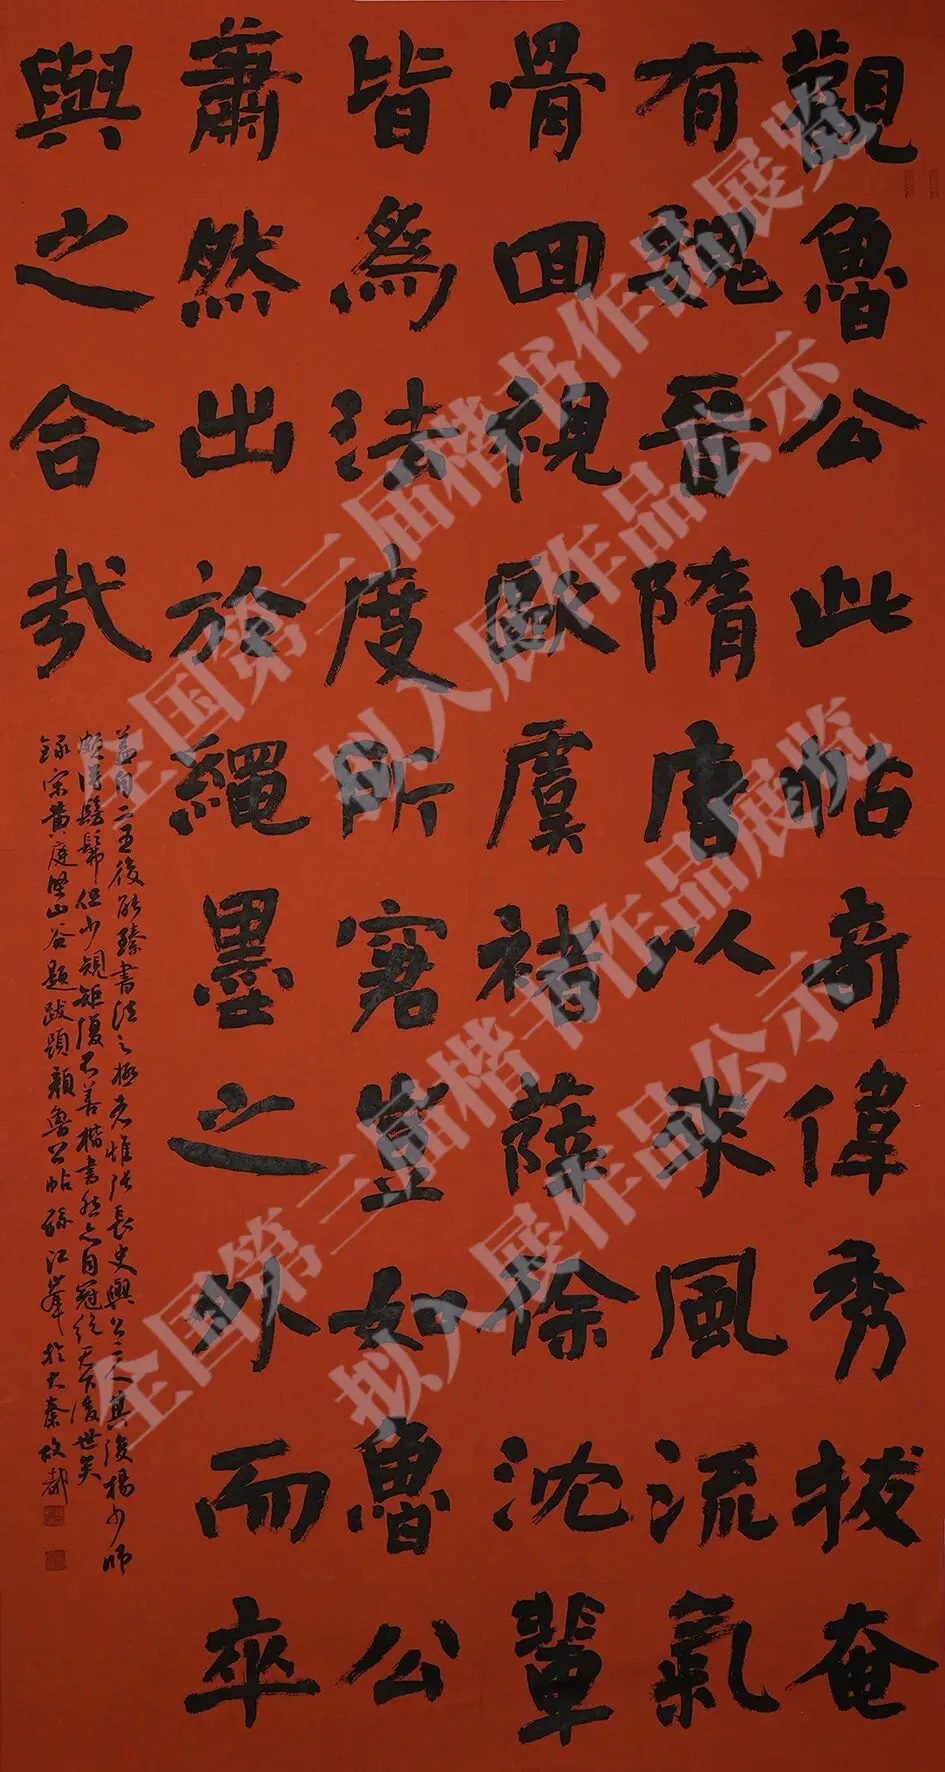 觀魯公此帖奇偉秀拔奄
有魏晉隋唐以來風流氣
骨回視歐虞褚薛徐沈輩
皆為法度所窘豈如魯公
蕭然出於繩墨之外而卒
與之合哉
蓋自二王後能臻書法之極者惟張長史與公二人其後楊少師
頗得髣髴但少規矩復不善楷書然亦自冠絕天下後世矣
錄宋黃庭堅山谷題跋題顏魯公帖 孫江峰於大秦故都
全国第三届楷书作品展览
拟入展作品公示
全国第三届楷书作品展览
拟入展作品公示